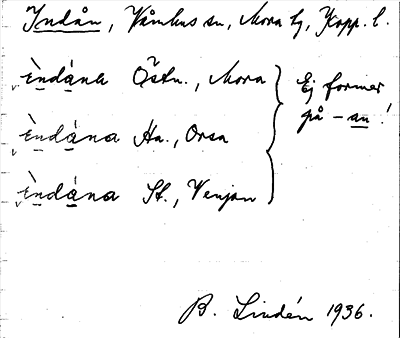 Indån, Våmhus sn, Mora tg, Kopp. l.
ìndána Östn., Mora
ìndána Ha., Orsa
ìndána St., Venjan
Ej former
på -an!
B. Lindén 1936.